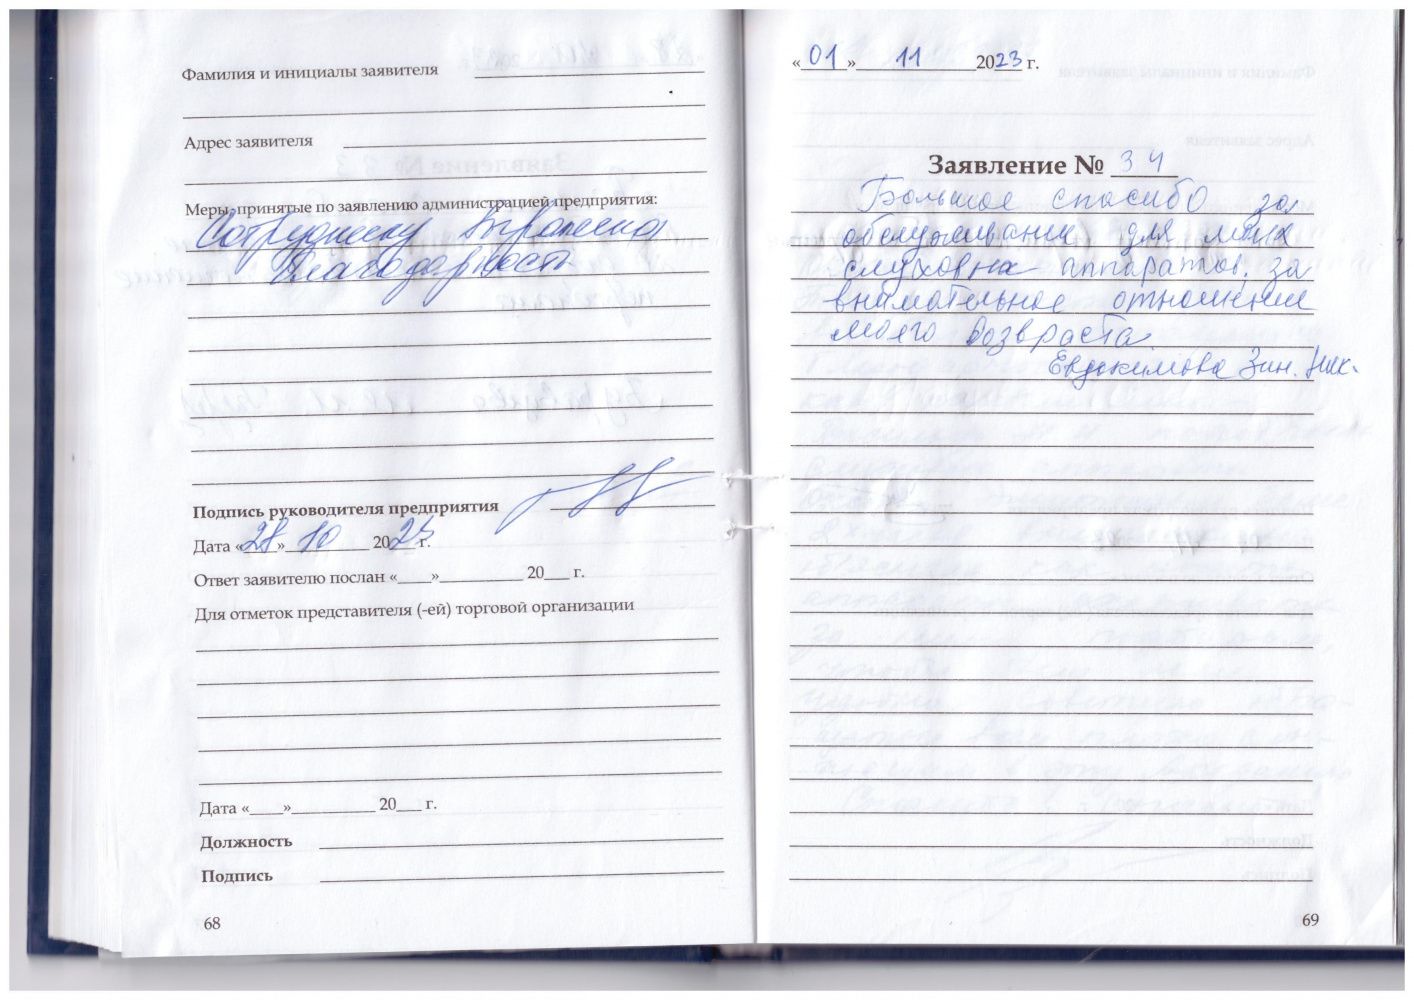 Фамилия и инициалы заявителя
Адрес заявителя
Меры, принятые по заявлению администрацией предприятия:
Сотруднику выражена
благодарность
Подпись руководителя предприятия
Дата «28» 10 2023 г.
Ответ заявителю послан «____»__________ 20___ г.
Для отметок представителя (-ей) торговой организации
Дата «____»__________ 20___ г.
Должность
Подпись
68
«01» 11 2023 г.
Заявление № 34
Большое спасибо за
обслуживание для моих
слуховых аппаратов, за
внимательное отношение
моего возвраста.
Евдокимова Зин. Ник.
69